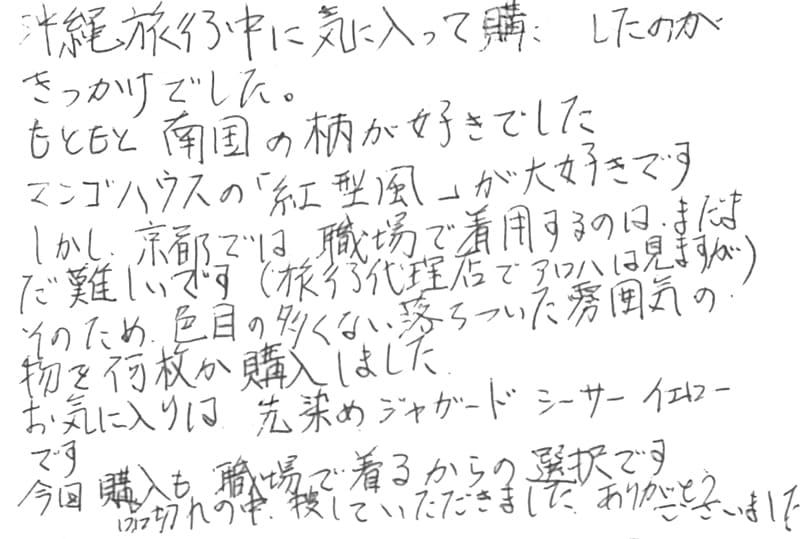 沖縄旅行中に気に入って購 したのが
きっかけでした。
もともと南国の柄が好きでした
マンゴハウスの「紅型風」が大好きです
しかし、京都では職場で着用するのは、まだま
だ難しいです(旅行代理店でアロハは見ますが)
そのため、色目の多くない、落ちついた雰囲気の
物を何枚か購入しました。
お気に入りは 先染めジャガード シーサー イエロー
です
今回購入も職場で着るからの選択です
品切れの中、探していただきました。ありがとう
ございました